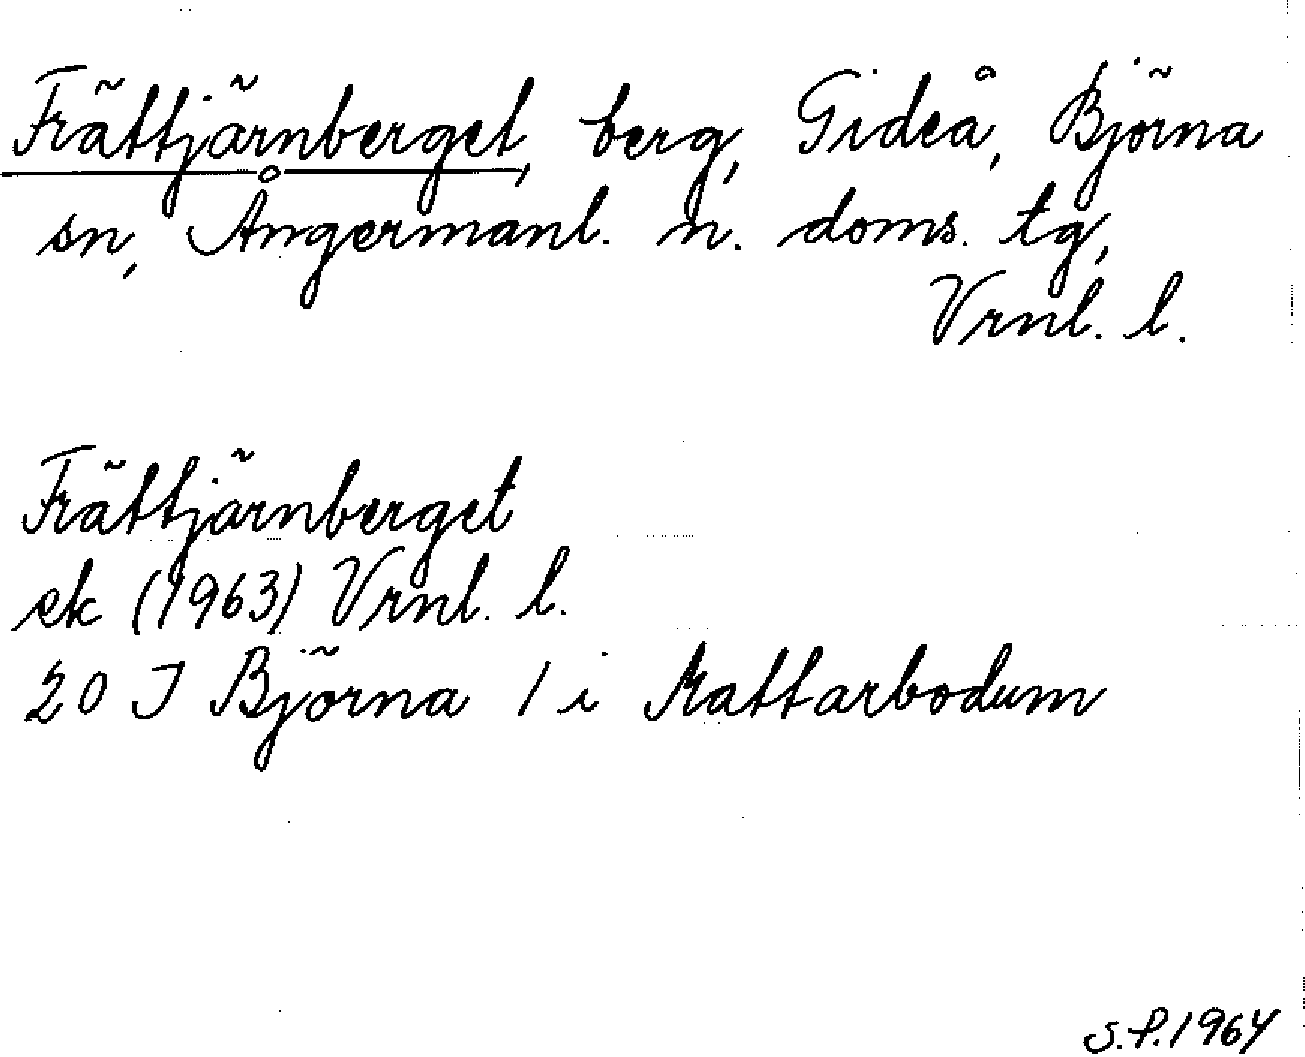 Frättjärnberget, berg, Gideå, Björna
sn, Ångermanl. n. doms. tg,
Vrnl. l.
Frättjärnberget
ek (1963) Vrnl. l.
20 J Björna 1 i Mattarbodum
S.P.1964